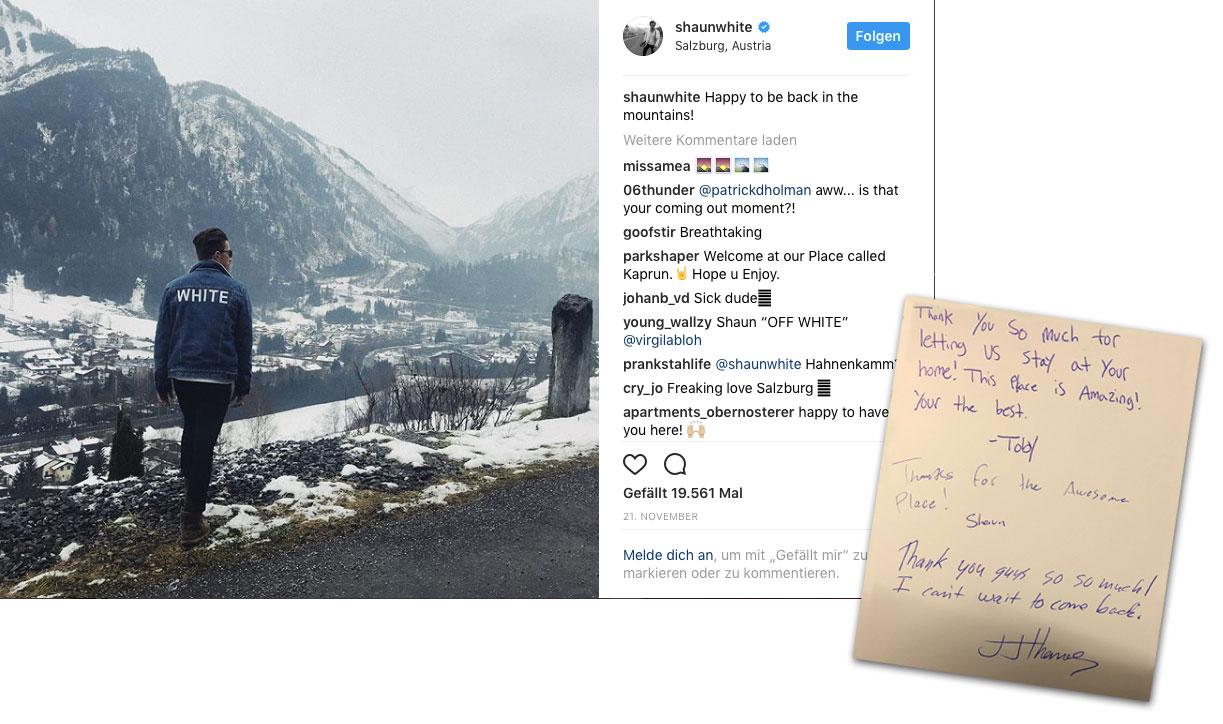 WHITE
shaunwhite
Salzburg, Austria
Folgen
shaunwhite Happy to be back in the
mountains!
Weitere Kommentare laden
missamea
06thunder @patrickdholman aww... is that
your coming out moment?!
goofstir Breathtaking
parkshaper Welcome at our Place called
Kaprun.🤘Hope u Enjoy.
johanb_vd Sick dude
young_wallzy Shaun “OFF WHITE”
@virgilabloh
prankstahlife @shaunwhite Hahnenkamm?
cry_jo Freaking love Salzburg
apartments_obernosterer happy to have
you here! 🙌🏼
Gefällt 19.561 Mal
21. NOVEMBER
Melde dich an, um mit „Gefällt mir” zu
markieren oder zu kommentieren.
Thank You So much for
letting US Stay at Your
home! This Place is Amazing!
Your the best.
-Toby
Thanks for the Awesome
Place!
Shaun
Thank you guys so so much!
I can't wait to come back.
JJ Thomas